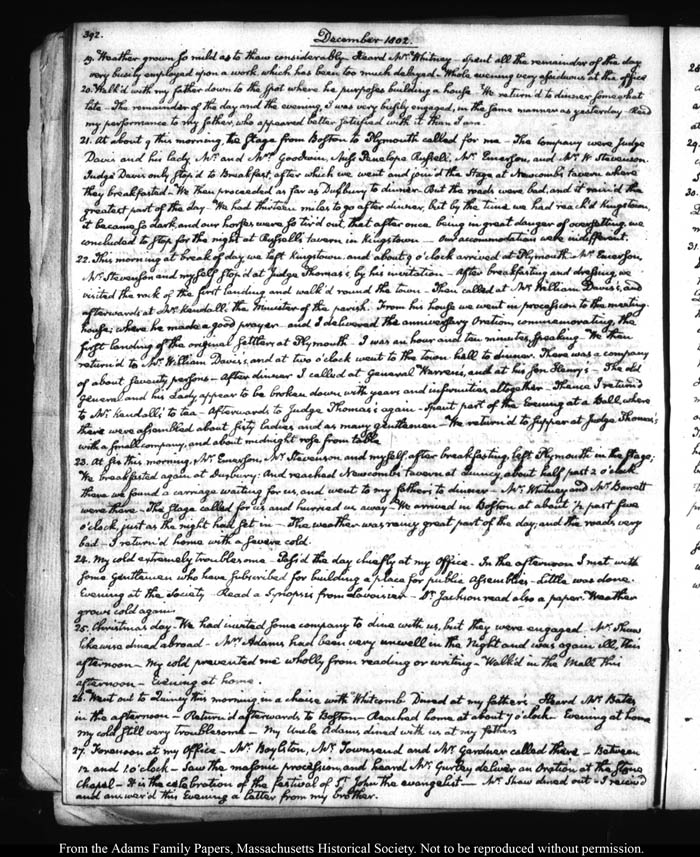 392.
December 1802.
19. Weather grown so mild as to thaw considerably. Heard Mr. Whitney — Spent all the remainder of the day
very busily employed upon a work, which has been too much delayed — Whole evening very assiduous at the office
20. Walk'd with my father down to the spot where he purposes building a house. We return'd to dinner somewhat
late — The remainder of the day and the evening, I was very busily engaged, in the same manner as yesterday. Read
my performance to my father, who appeared better satisfied with it than I am.
21. At about 9 this morning, the Stage from Boston to Plymouth called for me — The company were Judge
Davis and his lady, Mr. and Mrs. Goodwin, Miss Penelope Russell, Mr. Emerson, and Mr. W. Stevenson.
Judge Davis only stop'd to Breakfast, after which we went and join'd the Stage at Newcomb's tavern where
they breakfasted. We then proceeded as far as Duxbury to dinner. But the roads were bad, and it rain'd the
greatest part of the day. We had thirteen miles to go after dinner, but by the time we had reach'd Kingstown,
it became so dark, and our horses were so tir'd out, that after once being in great danger of oversetting, we
concluded to stop for the night at Russell's tavern, in Kingstown — Our accommodations were indifferent.
22. This morning at break of day we left Kingstown, and about 9 o'clock arrived at Plymouth. Mr. Emerson,
Mr. Stevenson and myself stop'd at Judge Thomas's, by his invitation — After breakfasting and dressing, we
visited the rock of the first landing and walk'd round the town — Then called at Mr. William Davis's, and
afterwards at Mr. Kendall's the Minister of the parish. From his house we went in procession to the meeting-
house; where he made a good prayer — and I delivered the anniversary Oration, commemorating, the
first landing of the original settlers at Plymouth. I was an hour and ten minutes, speaking. We then
return'd to Mr. William Davis's, and at two o'clock went to the town hall to dinner. There was a company
of about seventy persons — After dinner I called at General Warren's, and at his son Henry's — The old
General and his lady appear to be broken down with years and infirmities altogether — Thence I return'd
to Mr. Kendall's to tea — Afterwards to Judge Thomas's again — Spent part of the Evening at a Ball, where
there were assembled about sixty ladies and as many gentlemen — We return'd to supper at Judge Thomas's
with a small company, and about midnight rose from table
23. At six this morning, Mr. Emerson, Mr. Stevenson and myself, after breakfasting, left Plymouth in the Stage;
We breakfasted again at Duxbury. And reached Newcomb's tavern at Quincy, about half past 2 o'clock.
there we found a carriage waiting for us, and went to my father's to dinner — Mr. Whitney and Mr. Barrett
were there — The Stage called for us and hurried us away — We arrived in Boston at about 1/2 past five
o'clock, just as the night had set in — The weather was rainy great part of the day, and the roads very
bad — I return'd home with a severe cold.
24. My cold extremely troublesome — Pass'd the day chiefly at my Office — In the afternoon I met with
some Gentlemen who have subscribed for building a place for public Assemblies — Little was done.
Evening at the Society — Read a Synopsis from Lavoisier — Dr. Jackson read also a paper. Weather
grows cold again.
25. Christmas day — We had invited some company to dine with us, but they were engaged — Mr. Shaw
likewise dined abroad — Mrs. Adams had been very unwell in the Night and was again ill, this
afternoon — My cold prevented me wholly from reading or writing — Walk'd in the Mall this
afternoon — Evening at home.
26. Went out to Quincy this morning in a chaise with Whitcomb. Dined at my father's. Heard Mr. Bates
in the afternoon — Return'd afterwards to Boston — Reached home at about 7 o'clock. Evening at home
my cold still very troublesome — My Uncle Adams dined with us at my father's
27. Forenoon at my Office — Mr. Boylston, Mr. Townsend and Mr. Gardner called there — Between
12 and 1 o'clock — Saw the masonic procession, and heard Mr. Gurley deliver an Oration at the Stone
Chapel — It is the celebration of the festival of St. John the evangelist — Mr. Shaw dined out — I receiv'd
and answer'd this Evening a letter from my brother.
29.
30.
31.
From the Adams Family Papers, Massachusetts Historical Society. Not to be reproduced without permission.